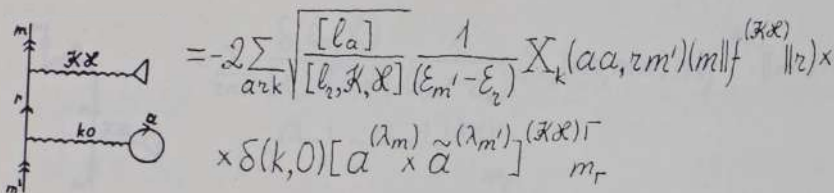 m
𝒦ℋ
r
k0 a
m'
= -2 Σ_{ark} √([l_a]/[l_r, 𝒦, ℋ]) 1/(ε_{m'} - ε_r) X_k(aa, rm')(m||f^{(𝒦ℋ)}||r)×
× δ(k,0)[a^{(λ_m)} × ã^{(λ_{m'})}]^{(𝒦ℋ)Γ}_{m_Γ}